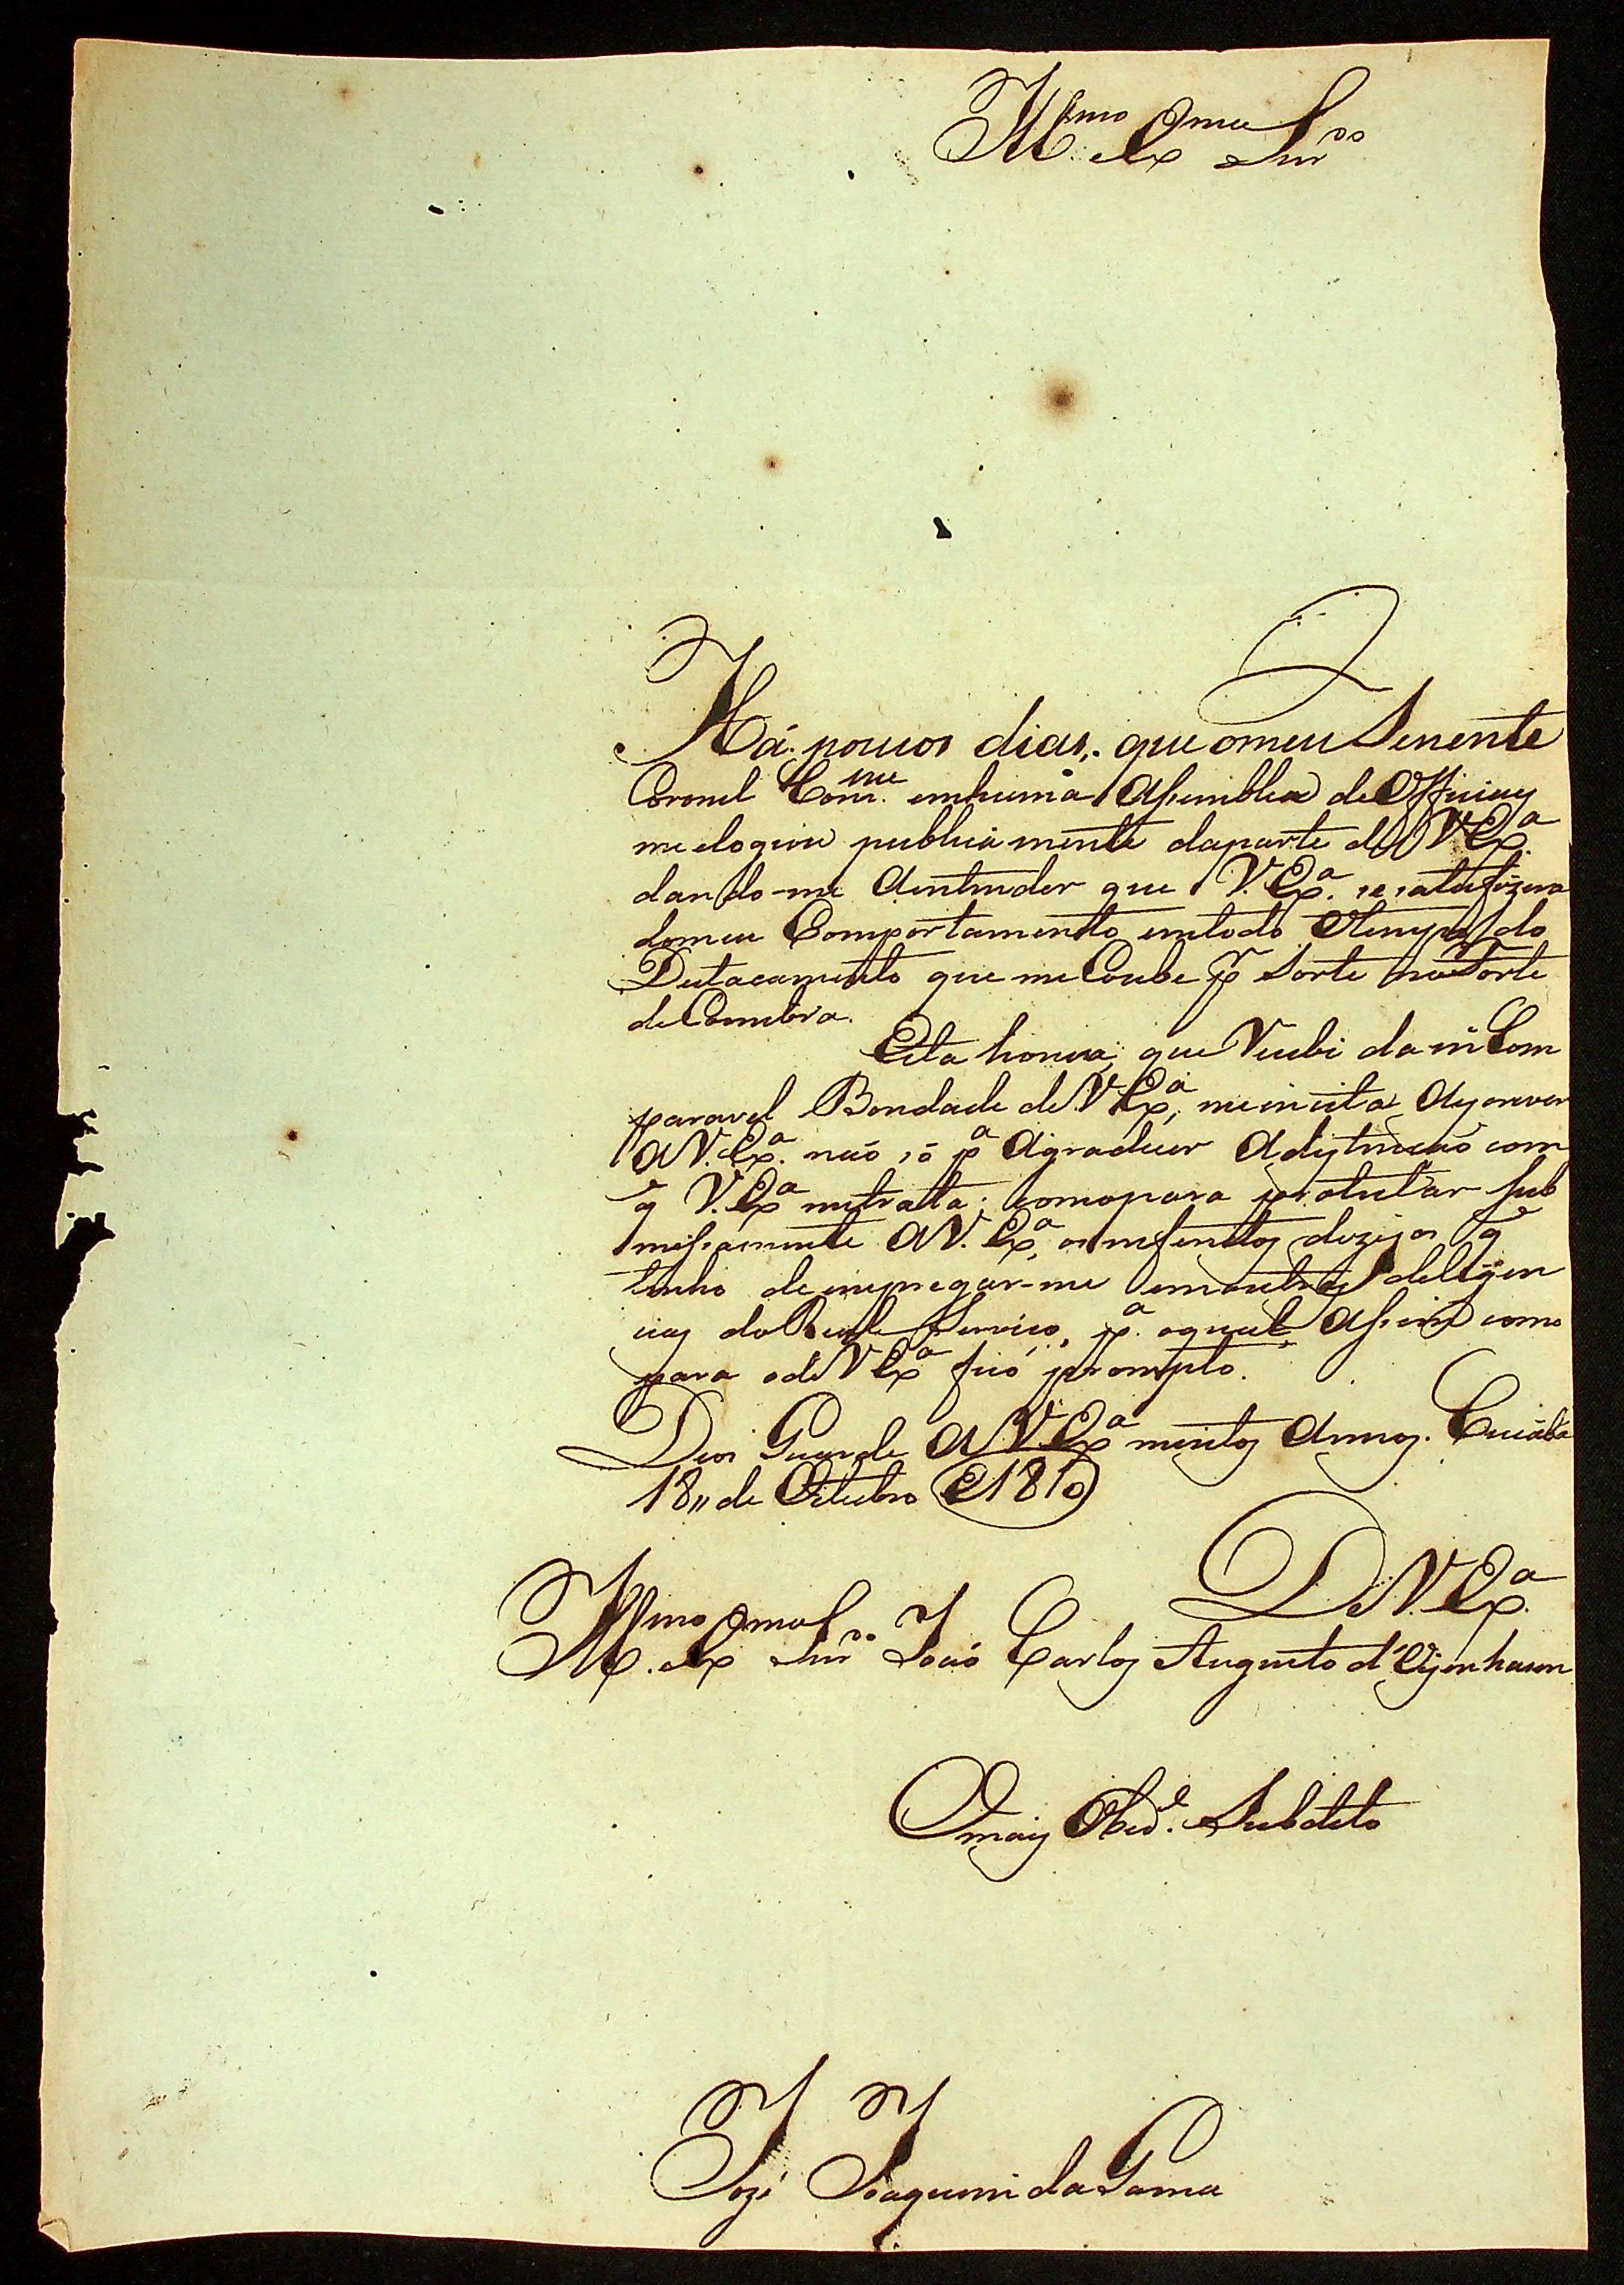 Ill.mo Ex.mo Snr.
Há poucos dias, que o meu Tenente
Coronel Com.e em huma Assemblea de Officiaes
me elogiou publica mente da parte de V Ex.a
dando-me a entender que V. Ex.a se satisfizera
do meu Comportamento em todo o tempo do
Destacamento que me Coube p.r Sorte no Forte
de Coimbra.
Esta honra, que Recebi da in Com
paravel Bondade de V. Ex.a, me incita a escrever
a V. Ex.a não só p.a agradecer a distincão com
q V. Ex.a me trata; como para protestar sub
missamente a V. Ex.a, os dezejos q
tenho de empregar-me em outras deligen
cias do Real Servico, p.a o qual, assim como
para o de V Ex.a fico prompto.
Deos Guarde a V. Ex.a muitos annos. Cuiabá
18,, de Oitubro de 1810
De V. Ex.a
Ill.mo Ex.mo Snr. João Carlos Augusto d'Oÿenhausen
O mais Obed.e Subdito
Jozé Joaquim da Gama